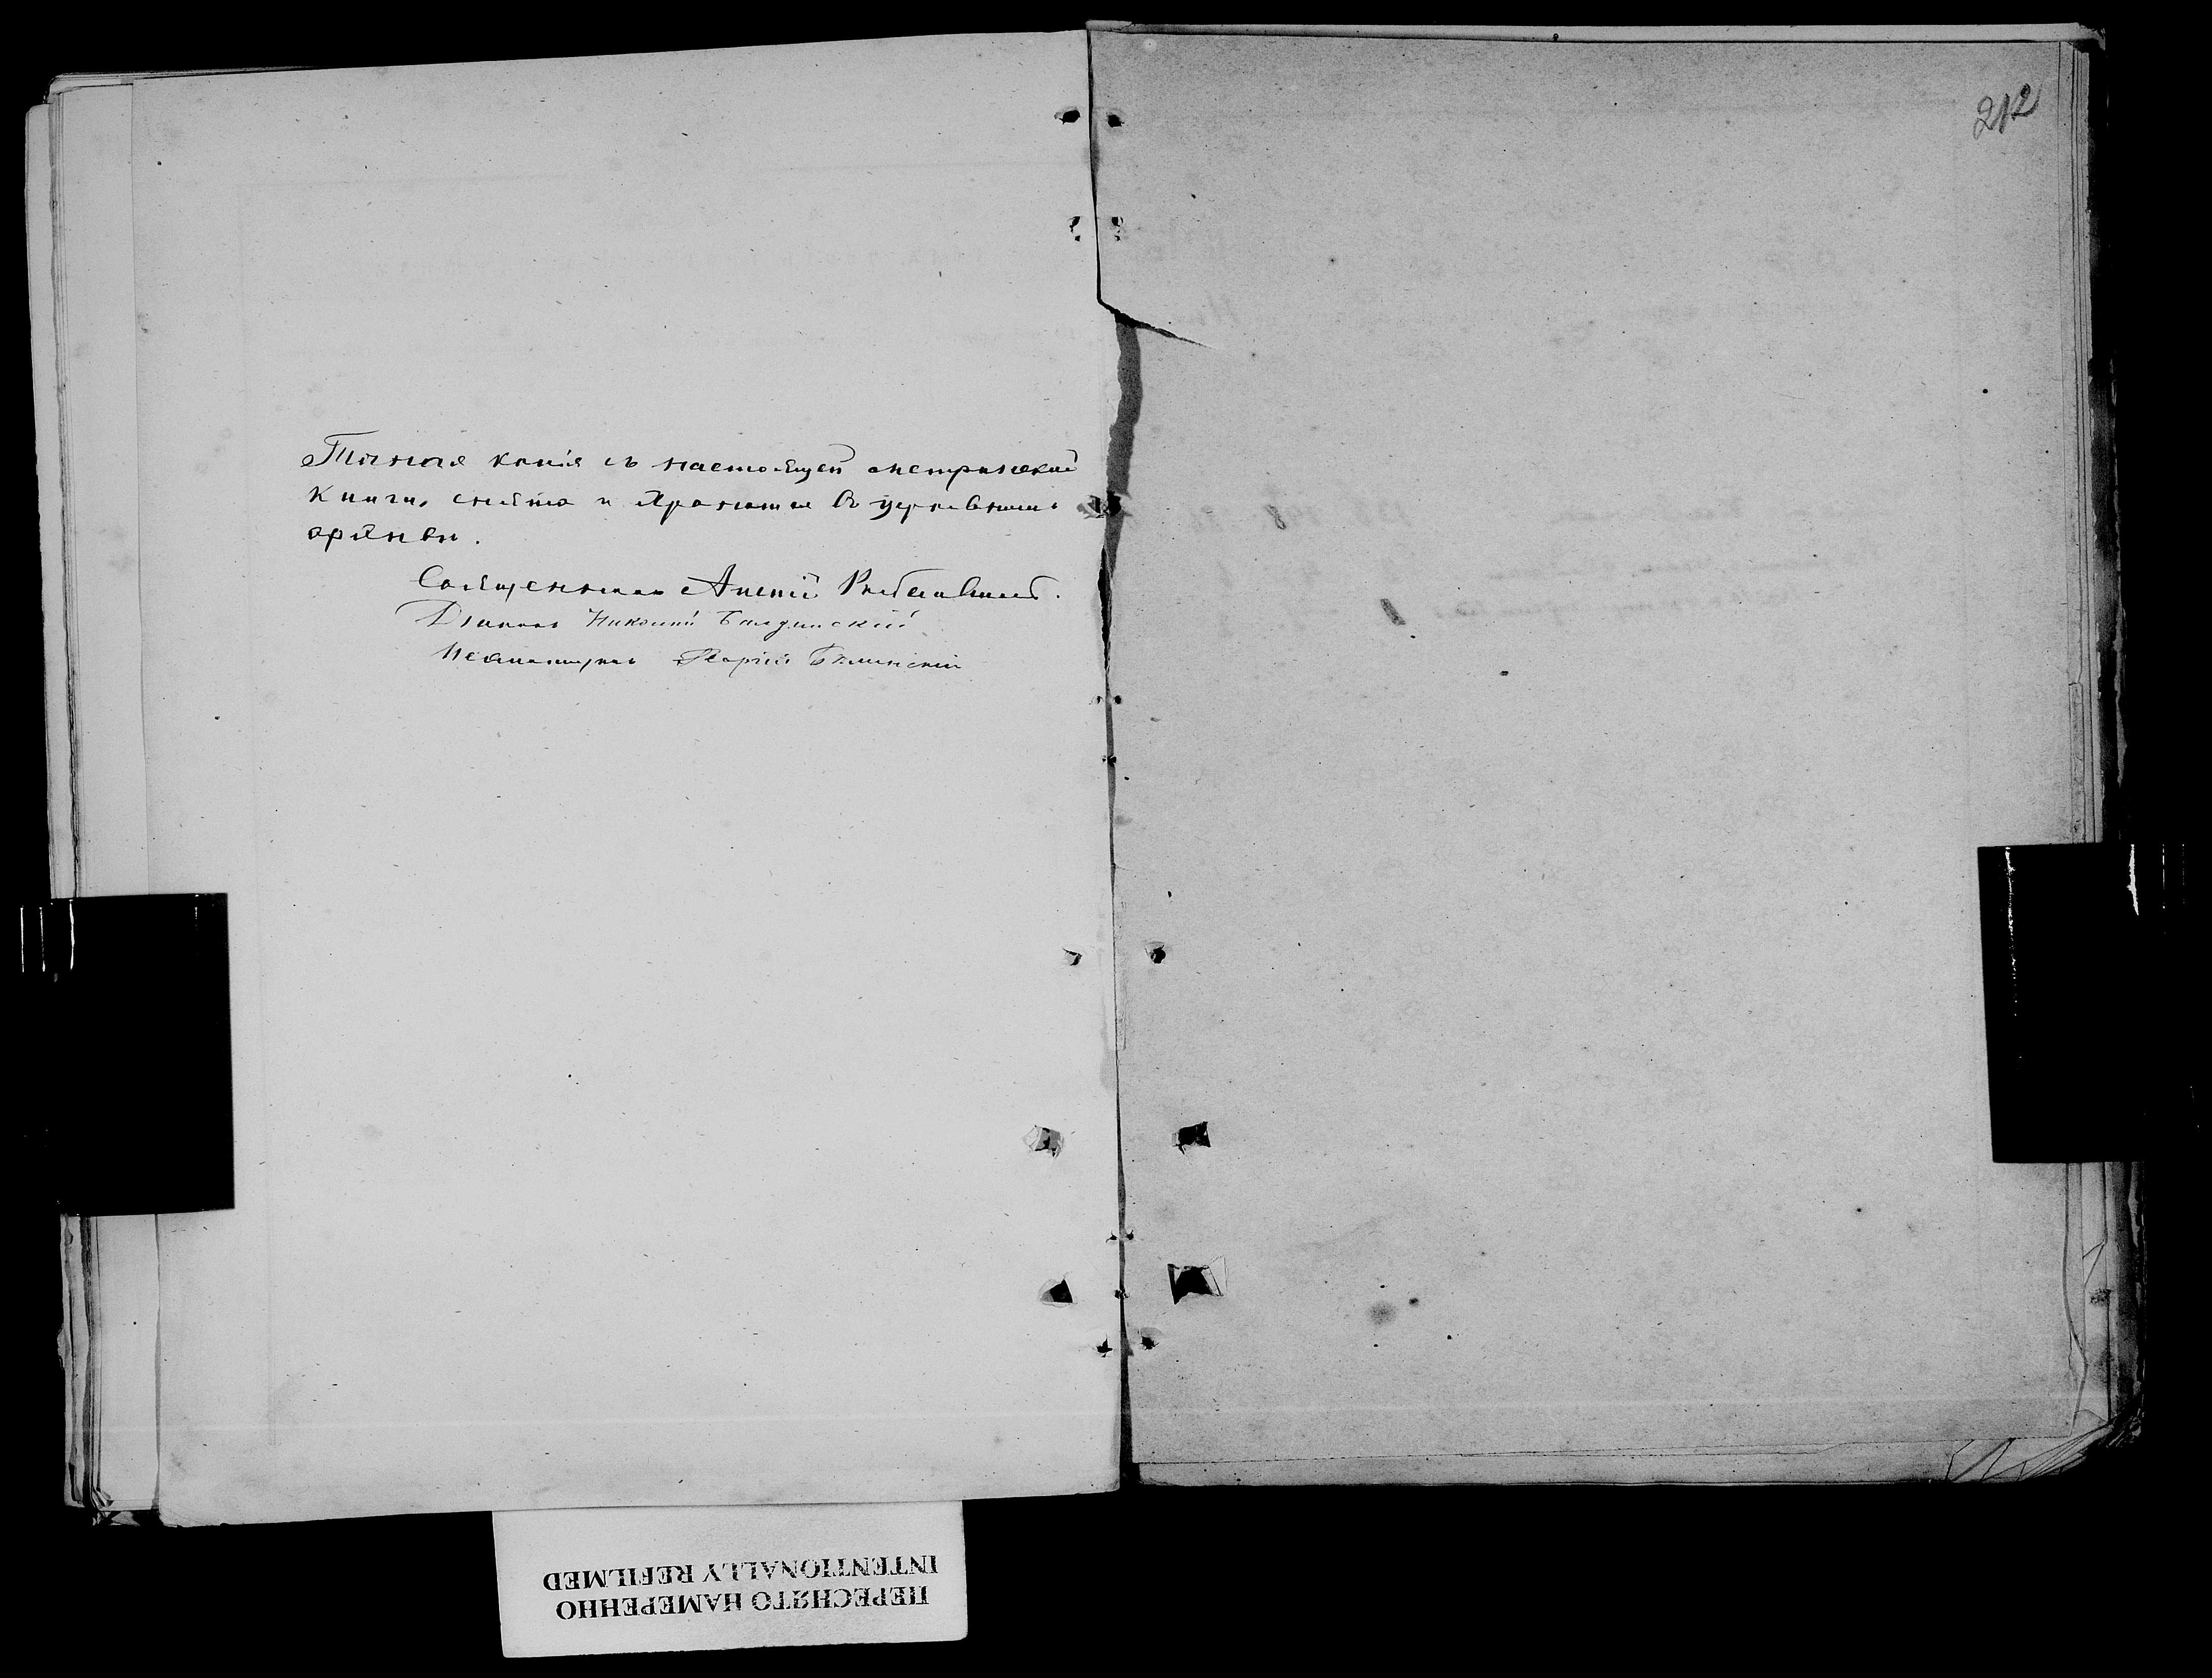 Точная копія съ настоящей метрической
книги снята и хранится въ церковномъ
архивѣ.
Священникъ Алексій
Діаконъ Николай
Псаломщикъ Георгій Бѣлинскій
212
ПЕРЕСНЯТО НАМЕРЕННО
INTENTIONALLY REFILMED